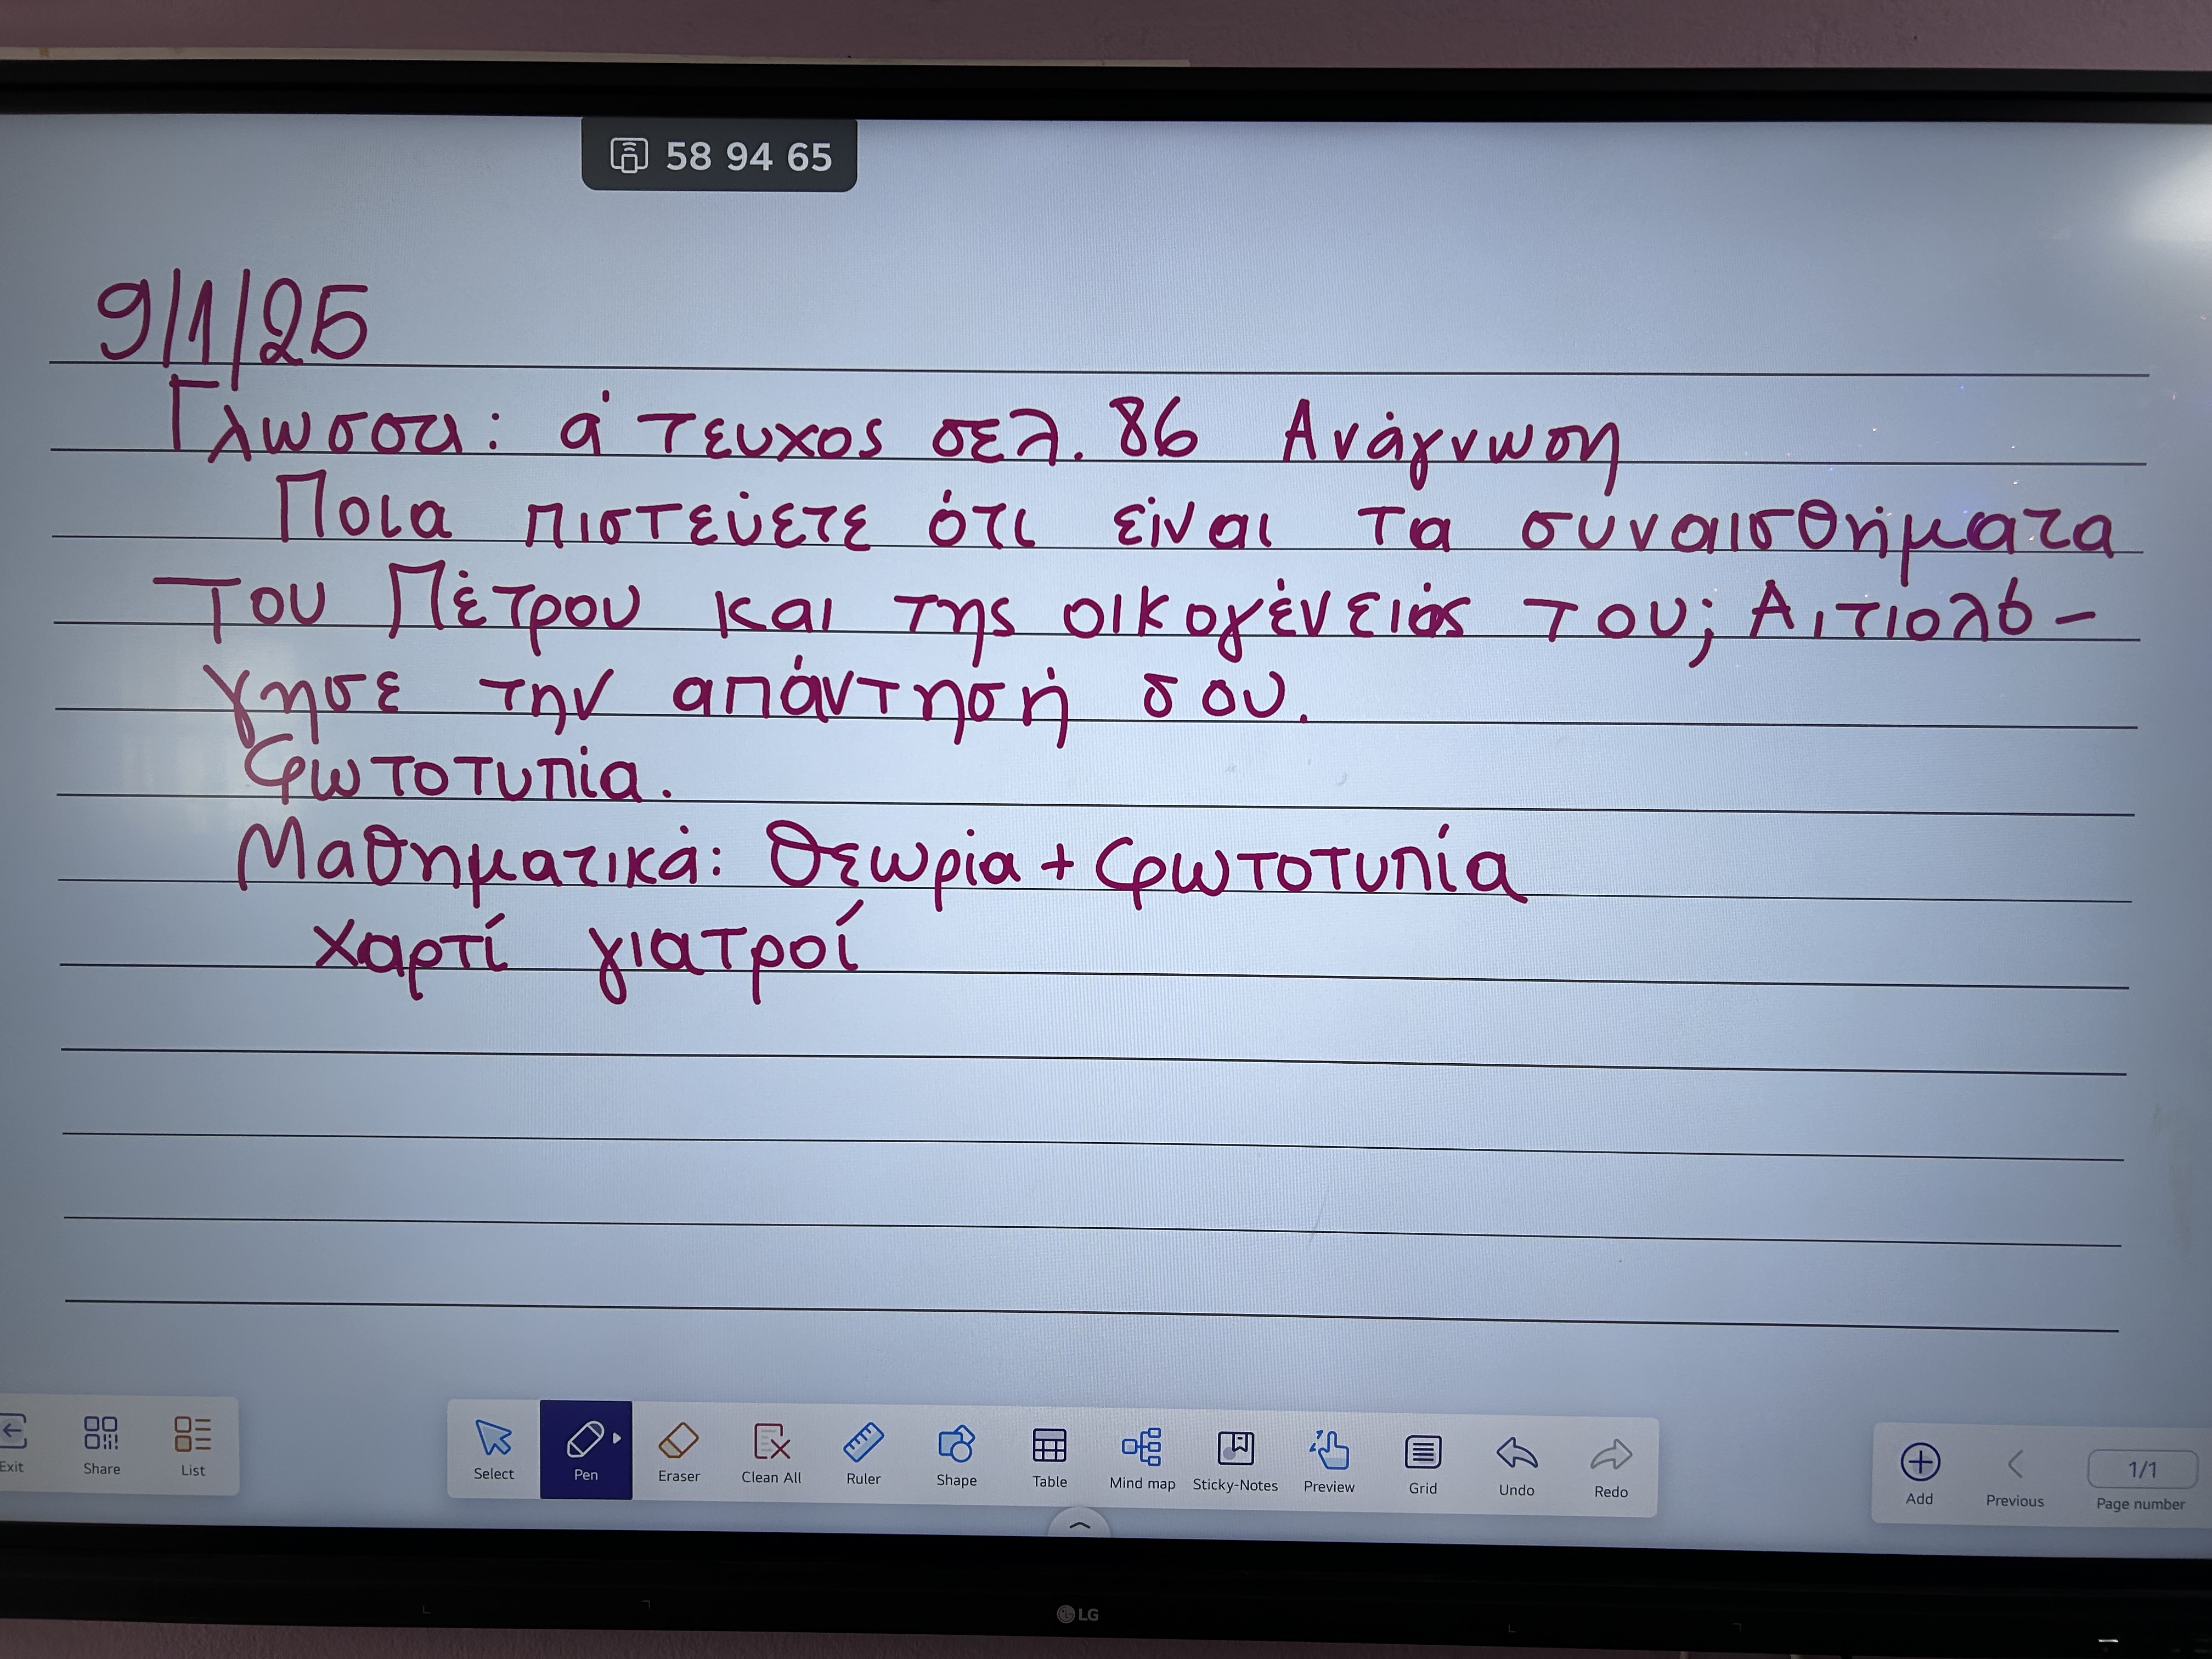 58 94 65
9/1/25
Γλωσσα: α' τευχος σελ. 86 Ανάγνωση
Ποια πιστεύετε ότι είναι τα συναισθήματα
του Πέτρου και της οικογένειάς του; Αιτιολό-
γησε την απάντησή σου.
Φωτοτυπία.
Μαθηματικά: Θεωρία + Φωτοτυπία
χαρτί γιατροί
Exit Share List Select Pen Eraser Clean All Ruler Shape Table Mind map Sticky-Notes Preview Grid Undo Redo Add Previous 1/1 Page number
LG